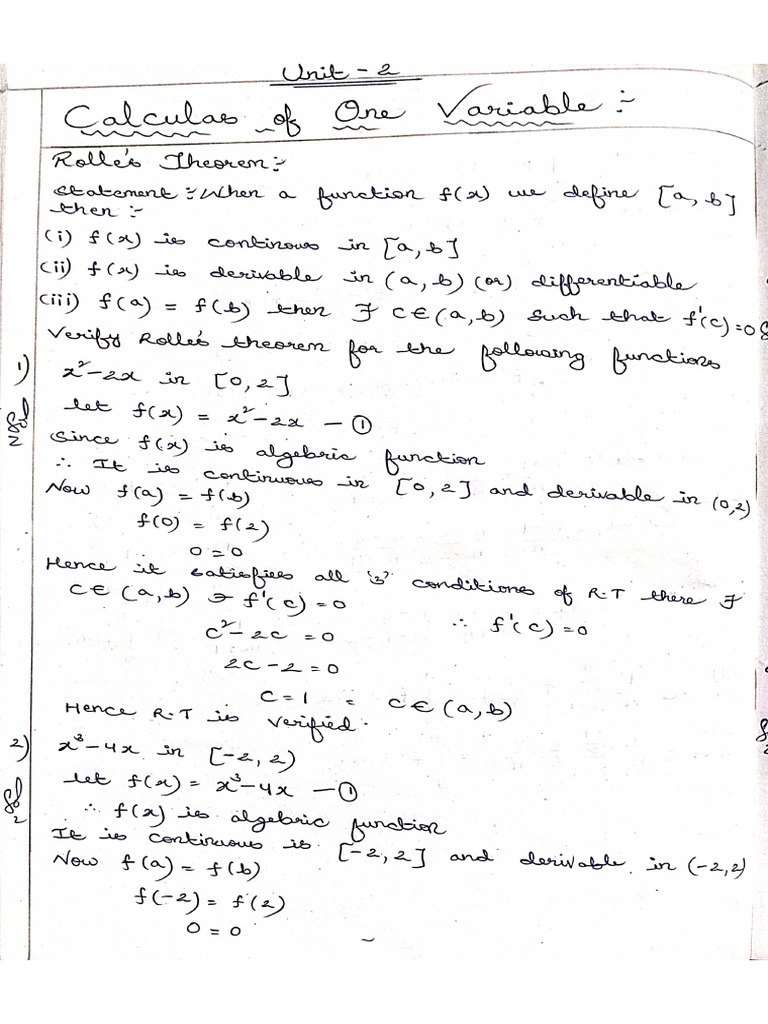 Unit - 2
Calculas of One Variable :-
Rolle's Theorem :-
Statement :- When a function f(x) we define [a, b]
then :-
(i) f(x) is continous in [a, b]
(ii) f(x) is derivable in (a, b) (or) differentiable
(iii) f(a) = f(b) then ∃ c∈(a, b) such that f'(c)=0
Verify Rolle's theorem for the following functions
1) x²-2x in [0, 2]
Sol let f(x) = x²-2x — ①
Since f(x) is algebric function
∴ It is continuous in [0, 2] and derivable in (0,2)
Now f(a) = f(b)
f(0) = f(2)
0 = 0
Hence it satisfies all '3' conditions of R.T there ∃
c∈ (a, b) ∋ f'(c) = 0
c²-2c = 0 ∴ f'(c) = 0
2c-2 = 0
c = 1 : c∈ (a, b)
Hence R.T is verified.
2) x³-4x in [-2, 2)
Sol let f(x) = x³-4x — ①
∴ f(x) is algebric function
It is continuous is [-2, 2] and derivable in (-2,2)
Now f(a) = f(b)
f(-2) = f(2)
0 = 0